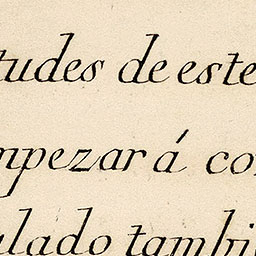 tudes de este
mpezará co
ulado tambi